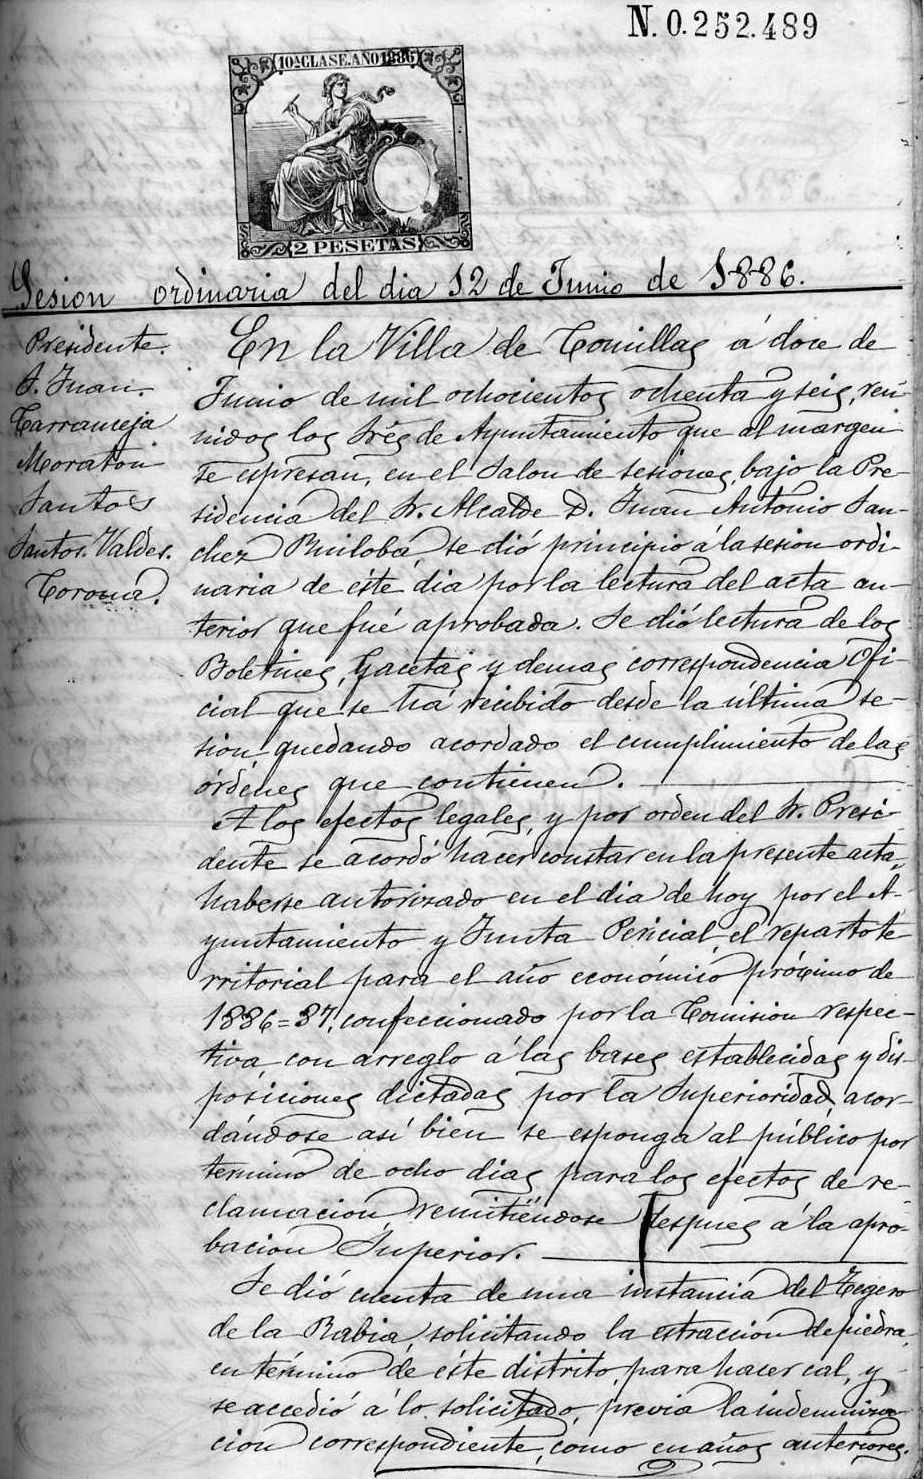 N. 0.252.489
10ª CLASE. AÑO 1886
2 PESETAS
Sesion ordinaria del dia 12 de Junio de 1886.
Presidente.
D. Juan.
Tarrameja
Moraton
Santos
Santos. Valdes.
Corona.
En la Villa de Comillas á doce de
Junio de mil ochocientos ochenta y seis, reu-
nidos los Srés de Ayuntamiento que al margen
se espresan, en el Salon de sesiones, bajo la Pre-
sidencia del Sr. Alcalde D. Juan Antonio San-
chez Builoba, se dió principio á la sesion ordi-
naria de éste dia por la lectura del acta an-
terior que fué aprobada. Se dió lectura de los
Boletines, Gacetas y demas correspondencia Ofi-
cial que se há recibido desde la última se-
sion quedando acordado el cumplimiento de las
órdenes que contienen.
A los efectos legales, y por orden del Sr. Presi-
dente se acordó hacer constar en la presente acta,
haberse autorizado en el dia de hoy por el A-
yuntamiento y Junta Pericial, el reparto te-
rritorial para el año económico próximo de
1886=87, confeccionado por la Comision respec-
tiva, con arreglo á las bases establecidas y dis-
posiciones dictadas por la Superioridad, acor-
dándose así bien se esponga al público por
termino de ocho dias para los efectos de re-
clamación remitiéndose despues á la apro-
bacion Superior.
Se dió cuenta de una instancia del Tegero
de la Rabia, solicitando la estraccion de piedra,
en término de éste distrito, para hacer cal, y
se accedió á lo solicitado, previa la indemniza-
cion correspondiente, como en años anteriores.